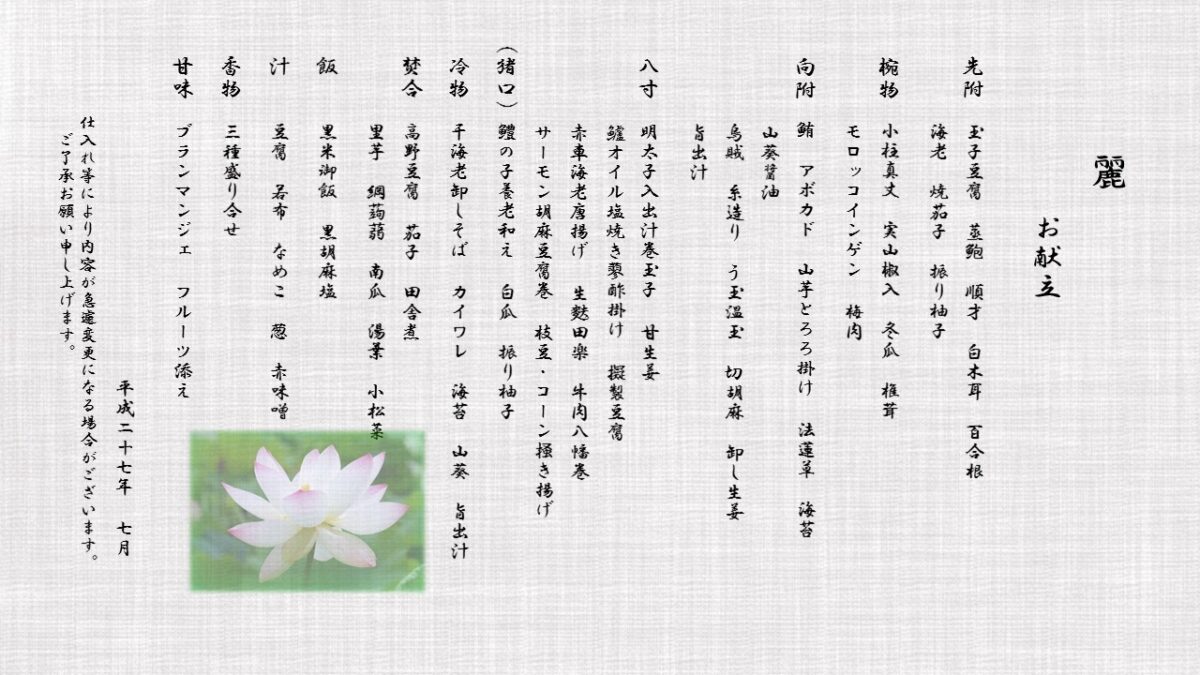 麗
お献立
先附　玉子豆腐　蒸鮑　順才　白木耳　百合根
海老　焼茄子　振り柚子
椀物　小柱真丈　実山椒入　冬瓜　椎茸
モロッコインゲン　梅肉
向附　鮪　アボカド　山芋とろろ掛け　法蓮草　海苔
山葵醤油
烏賊　糸造り　う玉温玉　切胡麻　卸し生姜
旨出汁
八寸　明太子入出汁巻玉子　甘生姜
鱸オイル塩焼き蓼酢掛け　擬製豆腐
赤車海老唐揚げ　生麩田楽　牛肉八幡巻
サーモン胡麻豆腐巻　枝豆・コーン掻き揚げ
（猪口）　鱧の子養老和え　白瓜　振り柚子
冷物　干海老卸しそば　カイワレ　海苔　山葵　旨出汁
焚合　高野豆腐　茄子　田舎煮
里芋　網蒟蒻　南瓜　湯葉　小松菜
飯　黒米御飯　黒胡麻塩
汁　豆腐　若布　なめこ　葱　赤味噌
香物　三種盛り合せ
甘味　ブランマンジェ　フルーツ添え
平成二十七年　七月
仕入れ等により内容が急遽変更になる場合がございます。
ご了承お願い申し上げます。